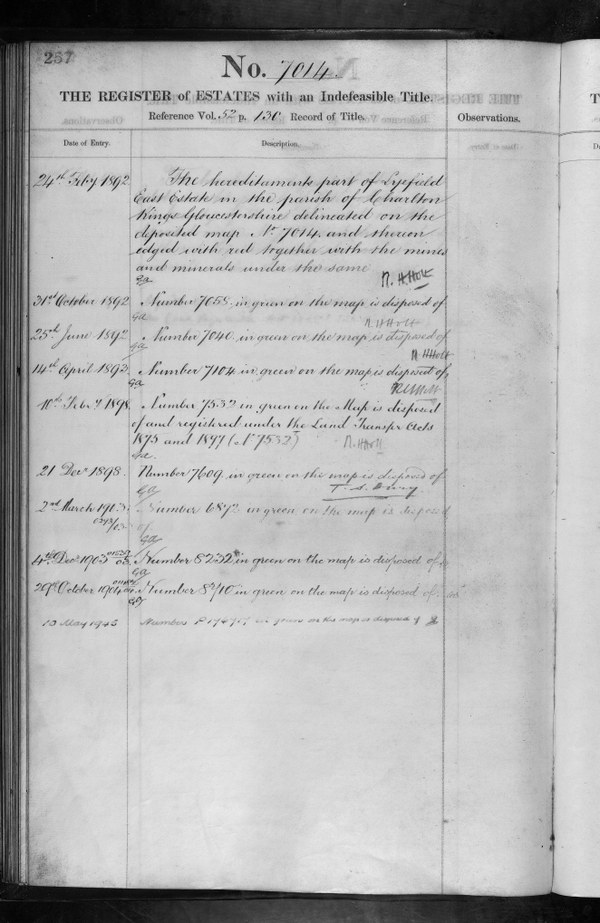 257
No. 7014.
THE REGISTER of ESTATES with an Indefeasible Title.
Reference Vol. 52 p. 130 Record of Title.
Observations.
Date of Entry.
Description.
24th Feby 1892
The hereditaments part of Lyefield
East Estate in the parish of Charlton
Kings Gloucestershire delineated on the
deposited map No 7014. and thereon
edged with red together with the mines
and minerals under the same
R. H. Holt
31st October 1892
Number 7058. in green on the map is disposed of
R. H. Holt
25th June 1892
Number 7040. in green on the map is disposed of
R H Holt
14th April 1893
Number 7104 in green on the map is disposed of
10th Feby 1898
Number 7532 in green on the Map is disposed
of and registered under the Land Transfer Acts
1875 and 1897 (No 7532)
R. H. Holt
21 Decr 1898.
Number 7609. in green on the map is disposed of
2nd March 1903.
Number 6892 in green on the map is disposed
of
4th Decr 1903
Number 8232 in green on the map is disposed of
29th October 1904
Number 8310 in green on the map is disposed of
10 May 1945
Number in green on the map is disposed of